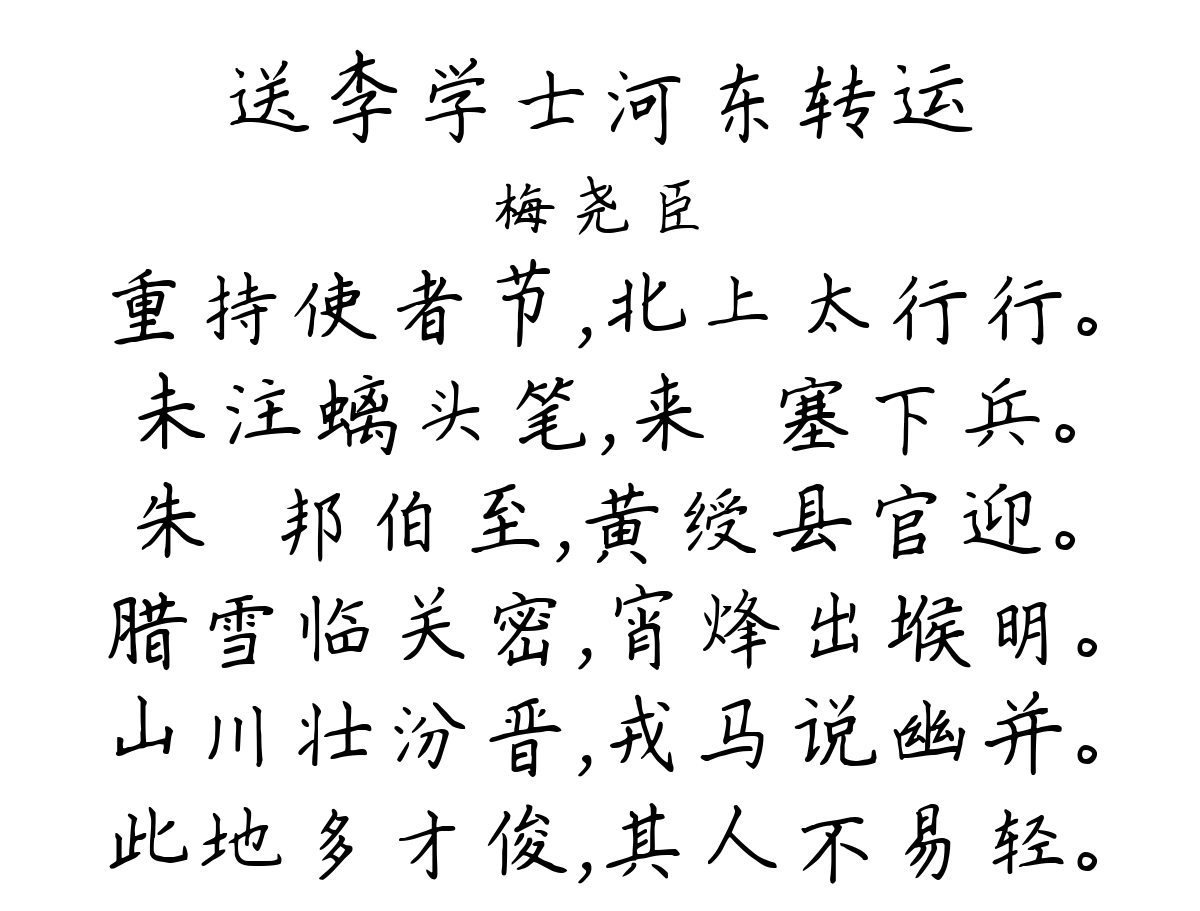 送李学士河东转运
梅尧臣
重持使者节,北上太行行。
未注螭头笔,来 塞下兵。
朱 邦伯至,黄绶县官迎。
腊雪临关密,宵烽出堠明。
山川壮汾晋,戎马说幽并。
此地多才俊,其人不易轻。